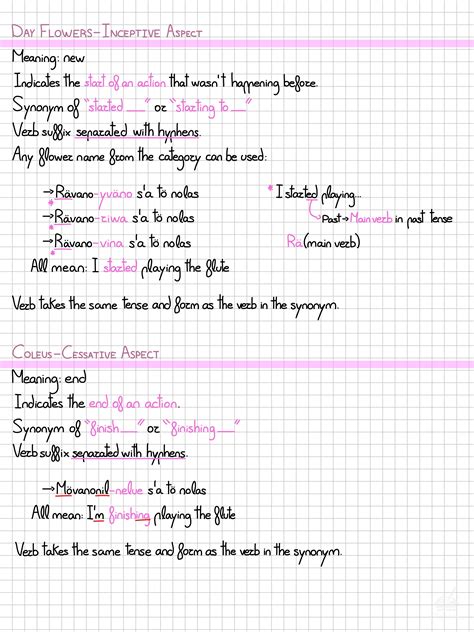 DAY FLOWERS-INCEPTIVE ASPECT
Meaning: new
Indicates the start of an action that wasn't happening before.
Synonym of "started __" or "starting to __"
Verb suffix separated with hyphens.
Any flower name from the category can be used:
→Rävano-yväno s'a tö nolas
* I started playing...
→Rävano-ziwa s'a tö nolas
Past→Main verb in past tense
→Rävano-vina s'a tö nolas
Rä(main verb)
All mean: I started playing the flute
Verb takes the same tense and form as the verb in the synonym.
COLEUS-CESSATIVE ASPECT
Meaning: end
Indicates the end of an action.
Synonym of "finish __" or "finishing __"
Verb suffix separated with hyphens.
→Mövanonil-nelue s'a tö nolas
All mean: I'm finishing playing the flute
Verb takes the same tense and form as the verb in the synonym.